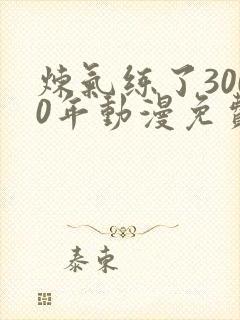 煉氣練了300
0年動漫免費
泰東